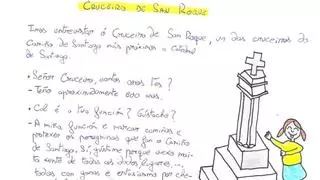 CRUCEIRO DE SAN ROQUE
Imos entrevistar ó Cruceiro de San Roque, un dos cruceiros do
Camiño de Santiago máis próximos á Catedral
de Santiago.
• Señor Cruceiro, cantos anos ten?
- Teño aproximadamente 600 anos.
• Cal é a túa función? Gústache?
- A miña función é marcar camiños e
protexer os peregrinos que fan o Camiño
de Santiago. Sí, gústame porque vexo moita
xente de todas as idades
todas con ganas e entusiasmo por